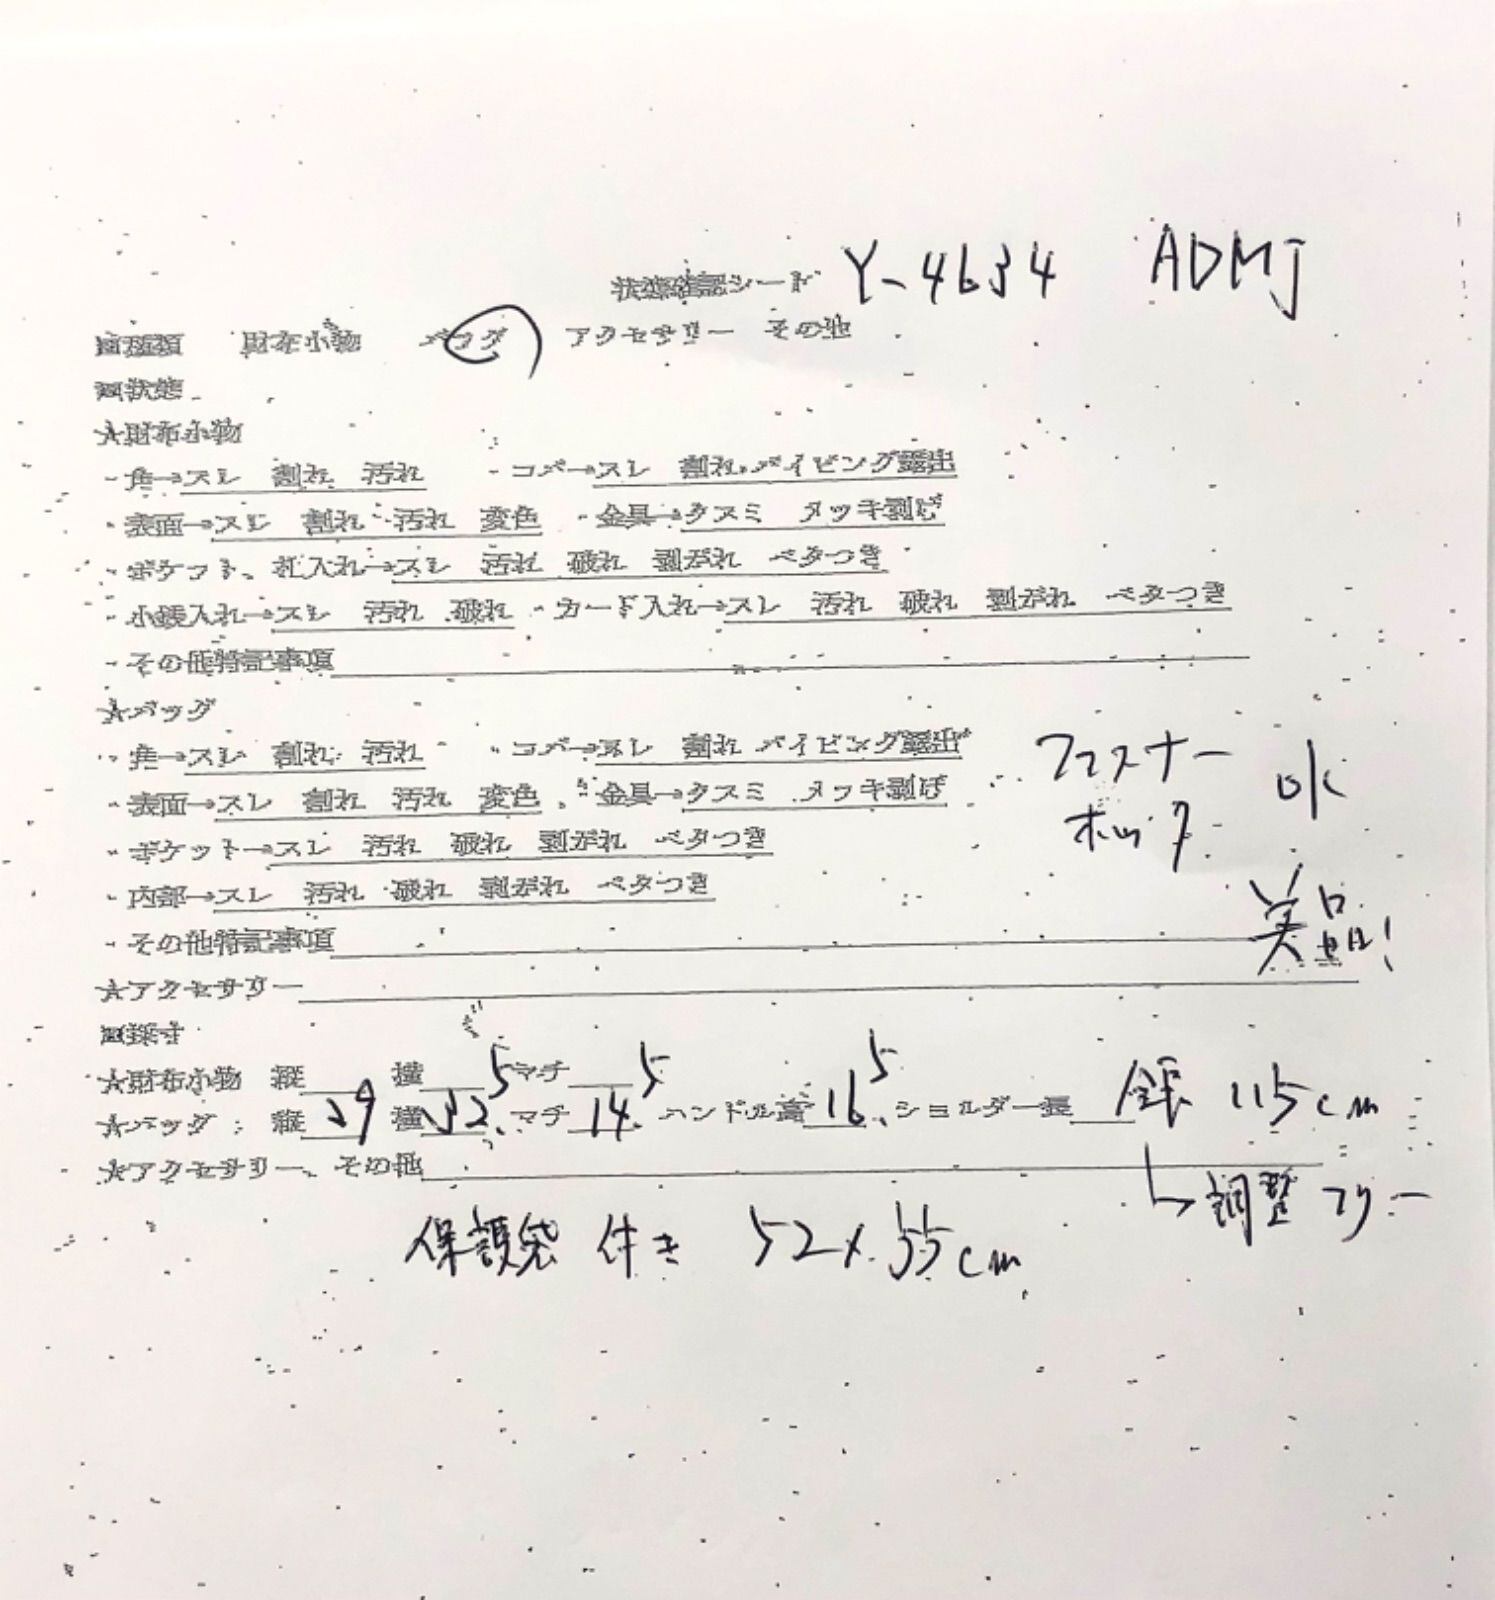 状態確認シート Y-4634 ADMJ
■種類 財布小物 バッグ アクセサリー その他
■状態
★財布小物
・角→スレ 割れ 汚れ ・コバ→スレ 割れ パイピング露出
・表面→スレ 割れ 汚れ 変色 ・金具→クスミ メッキ剥げ
・ポケット、札入れ→スレ 汚れ 破れ 剥がれ ベタつき
・小銭入れ→スレ 汚れ 破れ ・カード入れ→スレ 汚れ 破れ 剥がれ ベタつき
・その他特記事項
★バッグ
・角→スレ 割れ 汚れ ・コバ→スレ 割れ パイピング露出 ファスナー ok
・表面→スレ 割れ 汚れ 変色 ・金具→クスミ メッキ剥げ ホック
・ポケット→スレ 汚れ 破れ 剥がれ ベタつき
・内部→スレ 汚れ 破れ 剥がれ ベタつき
・その他特記事項 美品!
★アクセサリー
■採寸
★財布小物 縦 横 マチ
★バッグ 縦 29 横 32.5 マチ 14.5 ハンドル高 16.5 ショルダー長 全長 115cm
★アクセサリー、その他 ↳調整フリー
保護袋 付き 52×55cm